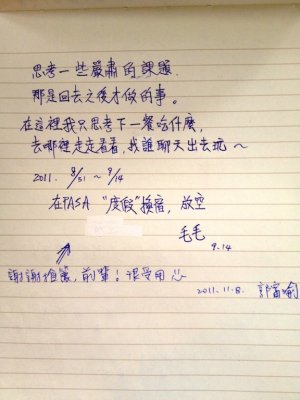 思考一些嚴肅的課題.
那是回去之後才做的事。
在這裡我只思考下一餐吃什麼,
去哪裡走走看看,找誰聊天出去玩~
2011. 8/31 ~ 9/14
在PASA "度假" 換宿, 放空
毛毛
9.14
謝謝推薦, 前輩! 很受用
2011.11.8. 郭富